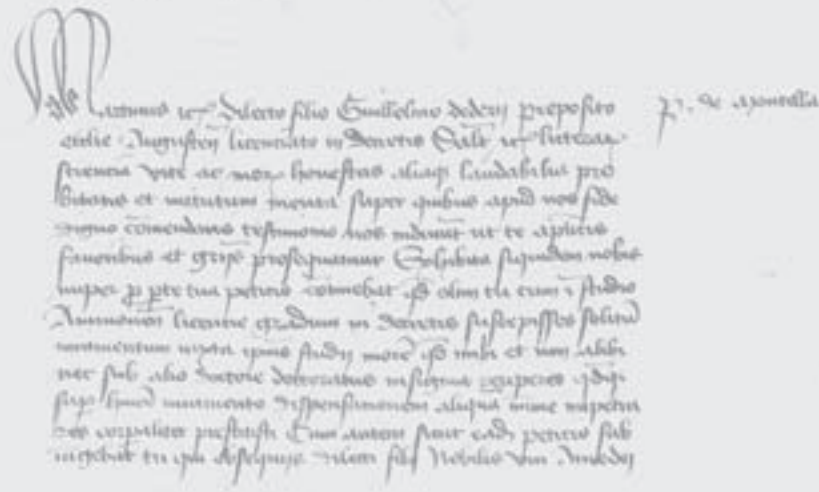 Martinus etc̄ Dilecto filio Guillelmo dedenj preposito P. de Montella
ecclie Augusten̄ licenciato in Decretis Salt̄ etc̄ litterar
sciencia vite ac mor honestas aliaqȝ laudabilia pro
bitatis et virtutum merita super quibus apud nos fide
digno cōmendaris testimonio nos inducūt ut te aplicis
favoribus et gr̄ijs prosequamur Exhibita siquidem nobis
nuper p̱ pte tua peticio cōtinebat qđ olim tu cum ī studio
Auinionen̄ licencie gradum in Decretis suscepisses solitū
iuramentum iuxta ipius studij morē qđ inibi et non alibi
nec sub alio doctore doctoratus insignia reciperes
sup huiꝰ iuramento dispensationem aliquā mīme impetra
res corpaliter prestitisti Cum autem sicut eadē peticio sub
iugebat tu qui obsequijs dilecti filij Nobilis viri Amedej